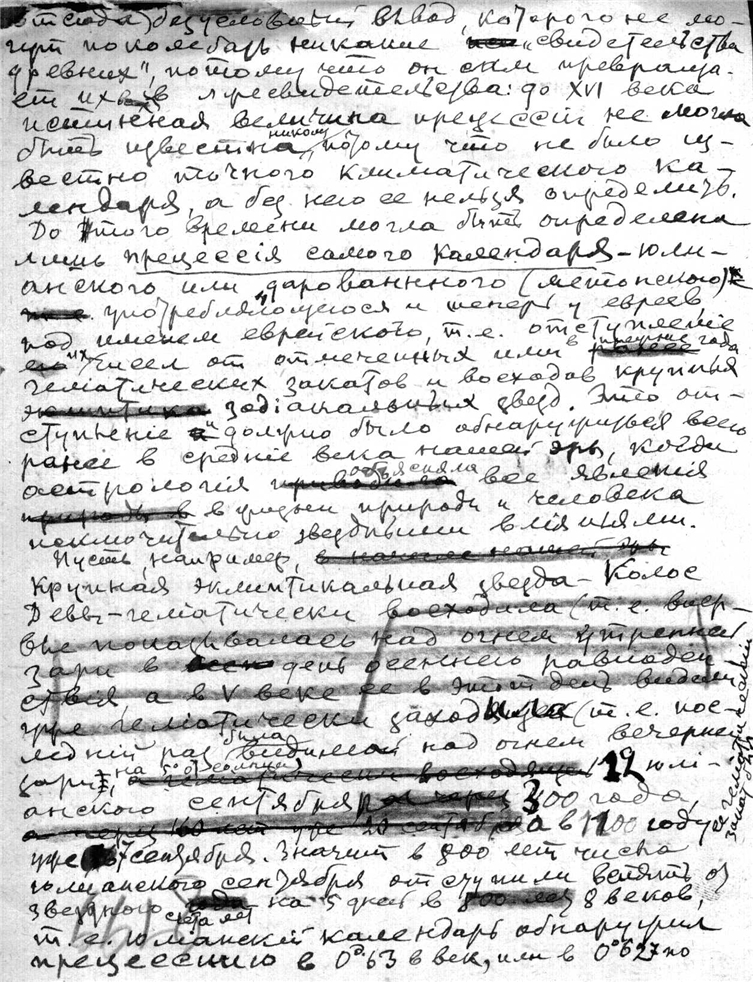 отсюда) безусловный вывод, которого не мо-
гут поколебать никакие "свидетельства
древних", потому что он сам превраща-
ет их в лжесвидетельства: до XVI века
истинная величина прецессіи не могла
быть известна никому, потому что не было из-
вестно точного климатического ка-
лендаря, а без него ее нельзя определить.
До этого времени могла быть определена
лишь прецессія самого календаря – юли-
анского или "дарованного (метонского)
употребляющегося и теперь у евреев
под именем еврейского, т.е. отступленіе
их чисел от отмеченных ими в
геліатических закатов и восходов крупных
зодіакальных звезд. Это от-
ступленіе должно было обнаружиться всего
ранее в средніе века нашей эры, когда
астрологія объясняла все явленія
в жизни природы и человека
исключительно звездными вліяніями.
Пусть, например,
крупная эклиптикальная звезда – Колос
Девы – геліатически восходила (т.е. впер-
вые показывалась над огнем утренней
зари в день осеннего равноден-
ствія, а в V веке ее в этот день видели
уже геліатически заходящей (т.е. пос-
ледній раз была видимой над огнем вечерней
зари, на 5° от солнца) 12 юлі-
анского сентября 300 года,
а в 1100 году ея геліатический закат
уже 7 сентября. Значит в 800 лет числа
юліанского сентября отступили вспять от
звездного счета лет на 5 дней в 8 веков,
т.е. юлианскій календарь обнаружил
прецессию в 0°63 в век, или в 0°627 по